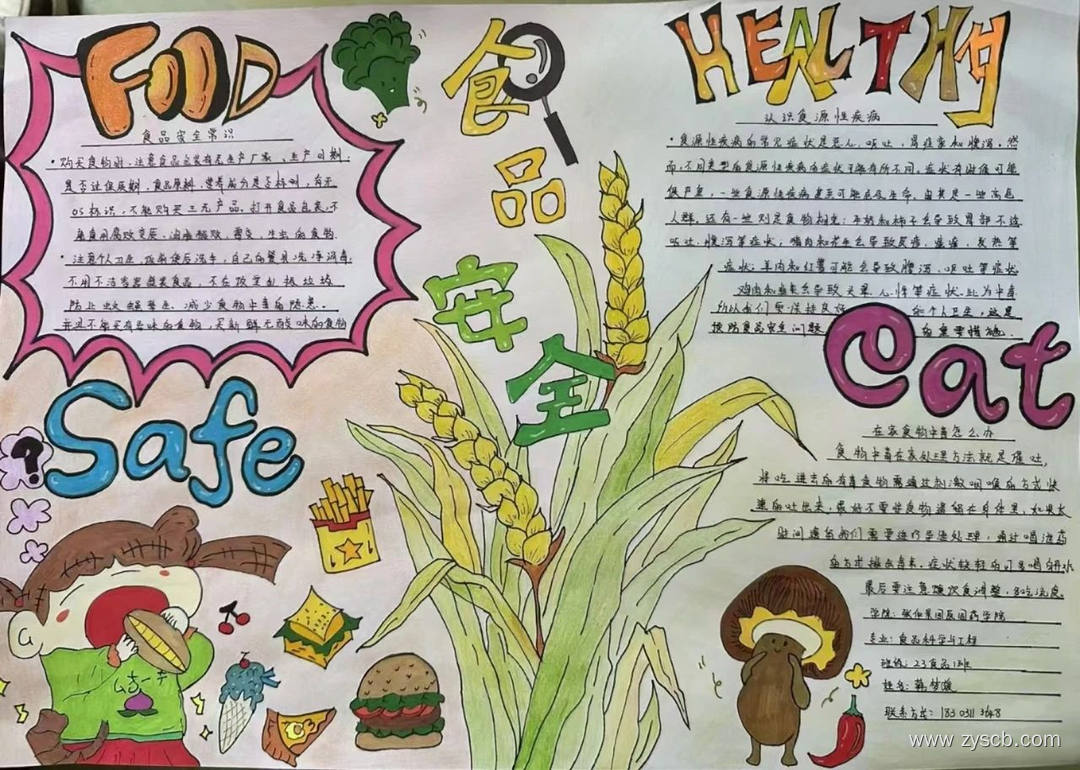 FOOD
食品安全
HEALTHY
食品安全常识
·购买食物时,注意食品包装有无生产厂家,生产日期,
是否过保质期,食品原料,营养成分是否标明,有无
QS标识,不能购买三无产品。打开食品包装,不
食用腐败变质、油脂酸败、霉变、生虫的食物
·注意个人卫生,饭前便后洗手,自己的餐具洗净消毒,
不用不洁容器盛装食品,不在饮乱扔垃圾
防止蚊蝇孳生。减少食物中毒的隐患。
并过不能买有异味的食物,买新鲜无酸味的食物
认识食源性疾病
·食源性疾病的常见症状是恶心,呕吐,胃痉挛和腹泻。然
而,不同类型的食源性疾病的症状可能有所不同。症状有时候可能
很严重,一些食源性疾病甚至可能危及生命。尤其是一些高危
人群,还有一些则是食物相克:牛奶和柿子会导致胃部不适
呕吐、腹泻等症状,猪肉和花生会导致
症状;羊肉和红薯可能会导致腹泻、呕吐等症状
鸡肉和会导致等症状。此为中毒
所以我们要保持良好的个人卫生,这是
预防食品安全问题的重要措施。
Safe
?
Eat
在家食物中毒怎么办
食物中毒在家处理方法就是催吐,
将吃进去的有毒食物通过刺激咽喉的方式快
速的吐出来,最好不要让食物遗留在身体里,如果长
时间遗留我们需要进行导泻处理,通过喝泻药
的方式排出毒素,症状较轻的可多喝白开水
最后要注意饮食调整,
学院:张仲景国医国药学院
专业:食品科学与工程
班级:23食品1班
姓名:韩梦
联系方式:
www.zyscb.com